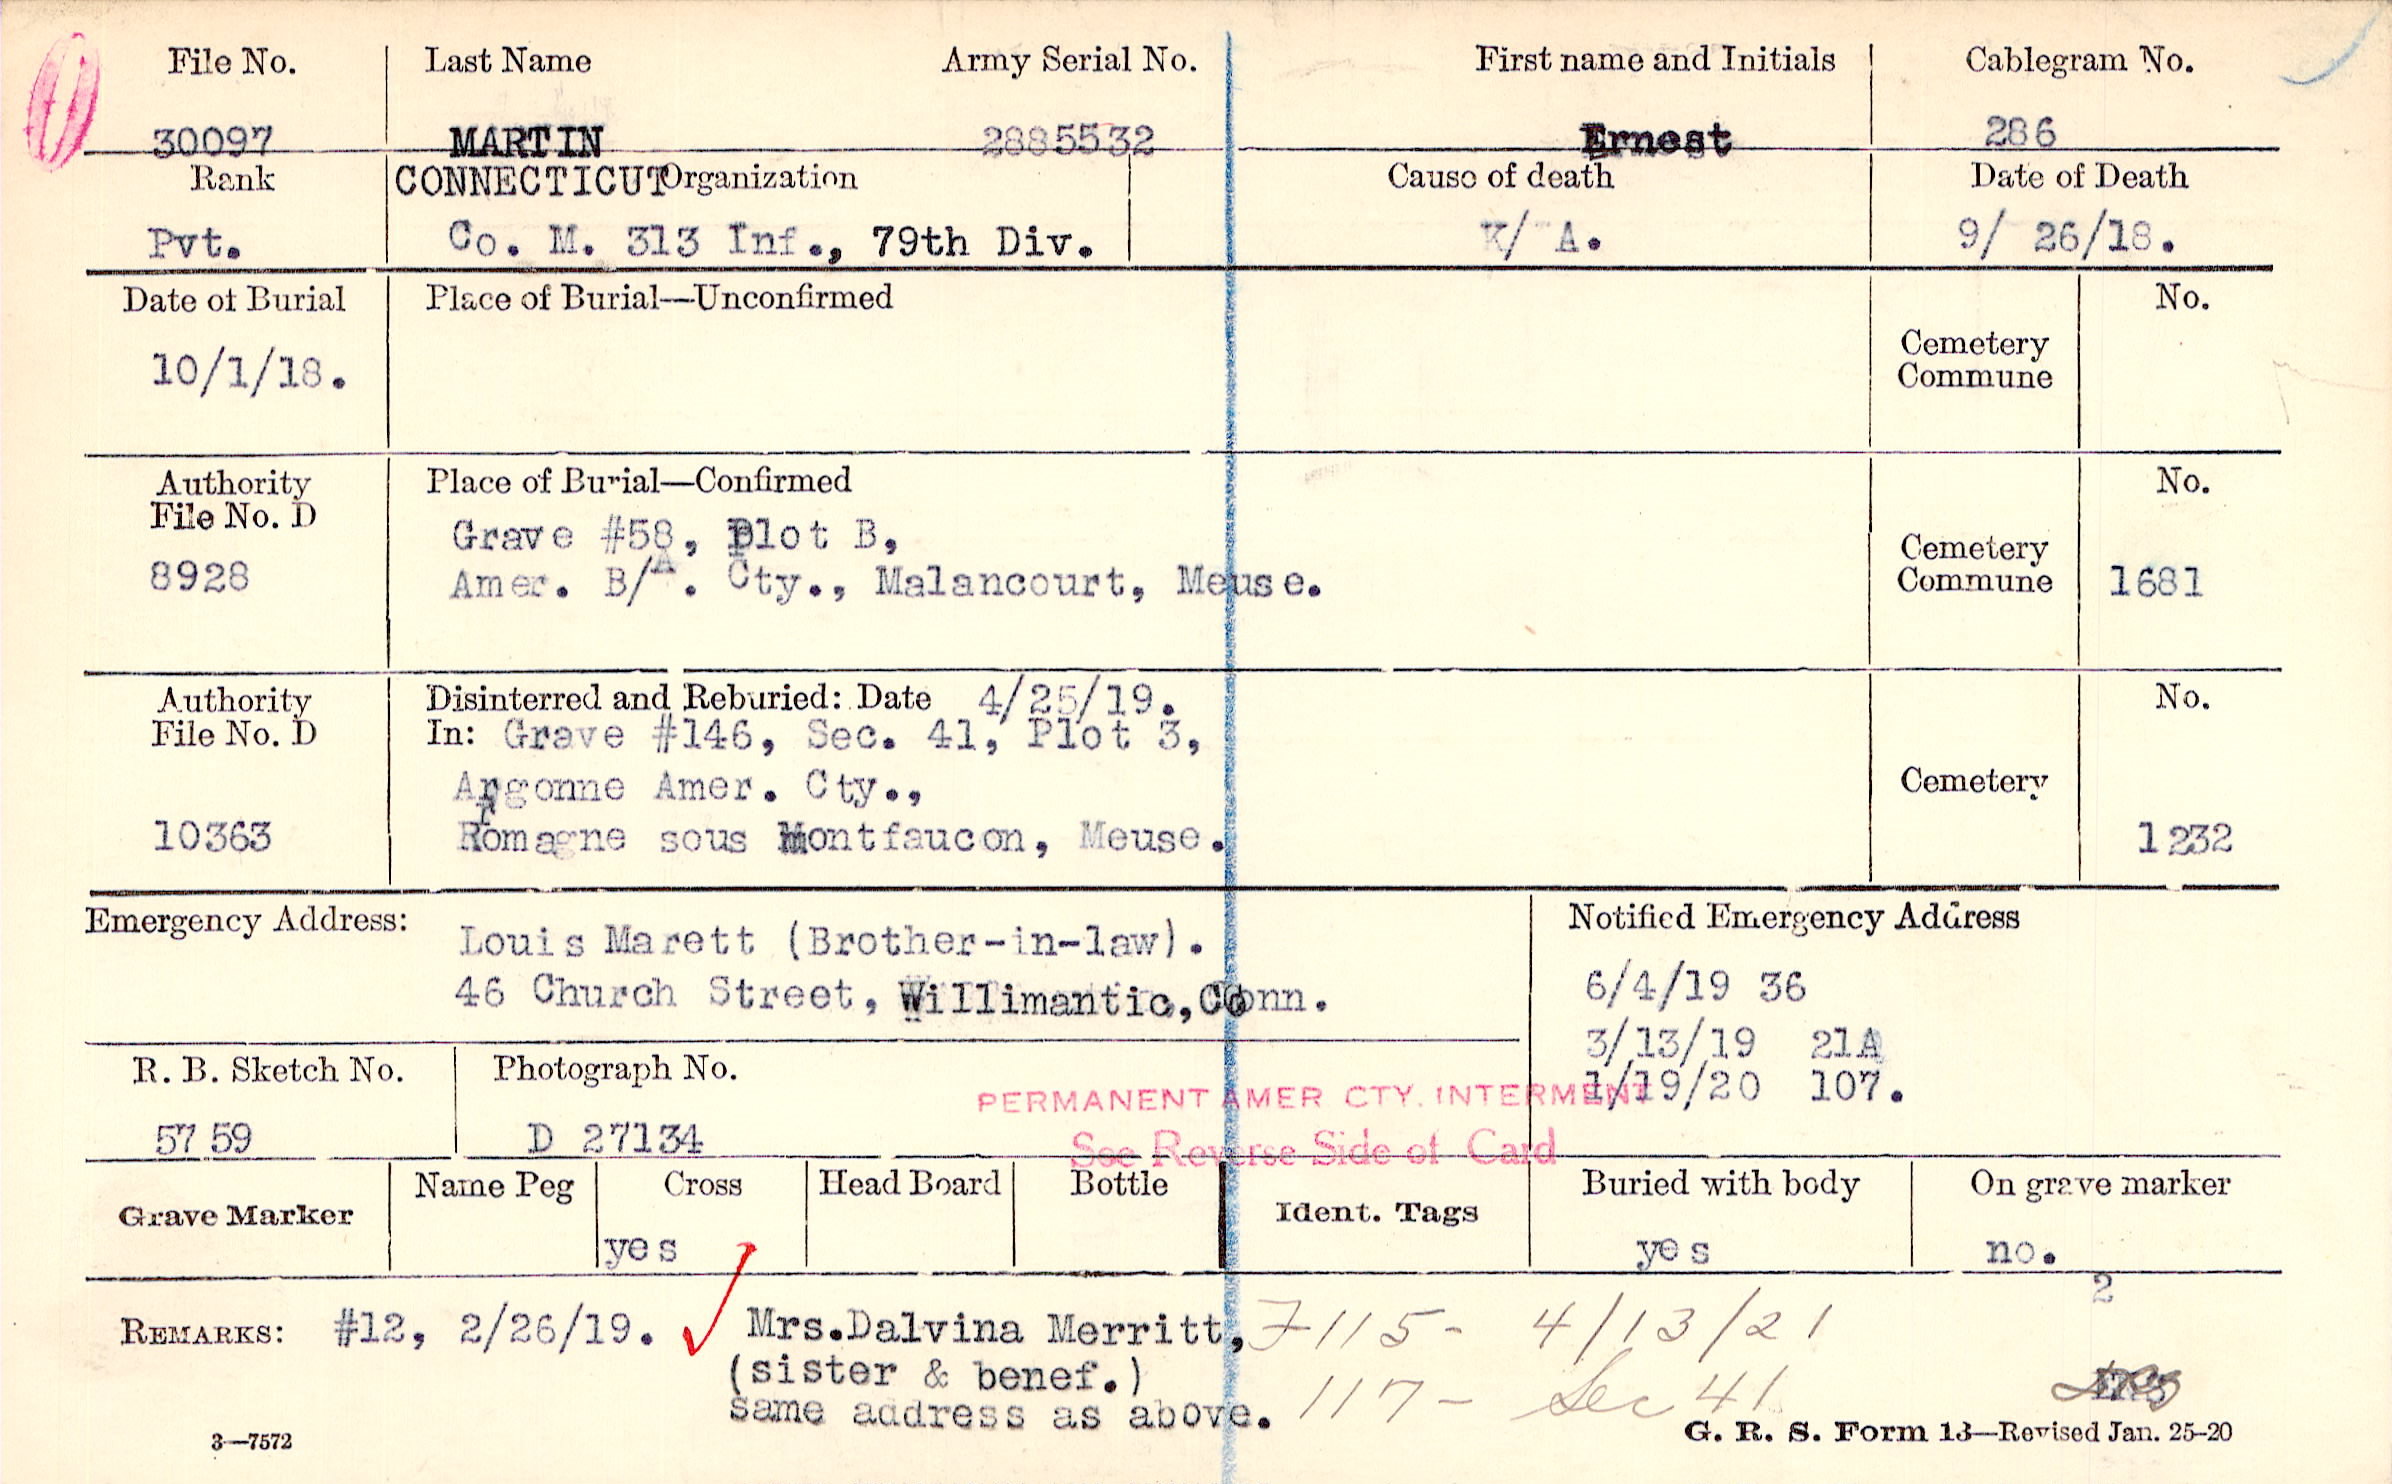 File No. Last Name Army Serial No. First name and Initials Cablegram No.
30097 MARTIN 2885532 Ernest 286
Rank CONNECTICUT Organization Cause of death Date of Death
Pvt. Co. M. 313 Inf., 79th Div. K/ A. 9/ 26/18.
Date of Burial Place of Burial—Unconfirmed No.
10/1/18. Cemetery
Commune
Authority Place of Burial—Confirmed No.
File No. D Grave #58, Plot B,
8928 Amer. B/A. Cty., Malancourt, Meuse. Cemetery
Commune 1681
Authority Disinterred and Reburied: Date 4/25/19. No.
File No. D In: Grave #146, Sec. 41, Plot 3,
Argonne Amer. Cty., Cemetery
10363 Romagne sous Montfaucon, Meuse. 1232
Emergency Address: Louis Marett (Brother-in-law). Notified Emergency Address
46 Church Street, Willimantic, Conn. 6/4/19 36
3/13/19 21A
R. B. Sketch No. Photograph No. 1/19/20 107.
PERMANENT AMER CTY. INTERMENT
5759 D 27134 See Reverse Side of Card
Grave Marker Name Peg Cross Head Board Bottle Ident. Tags Buried with body On grave marker
yes yes no.
2
REMARKS: #12, 2/26/19. Mrs.Dalvina Merritt, F115- 4/13/21
(sister & benef.)
same address as above. 117- Sec 41
3—7572 G. R. S. Form 13—Revised Jan. 25-20